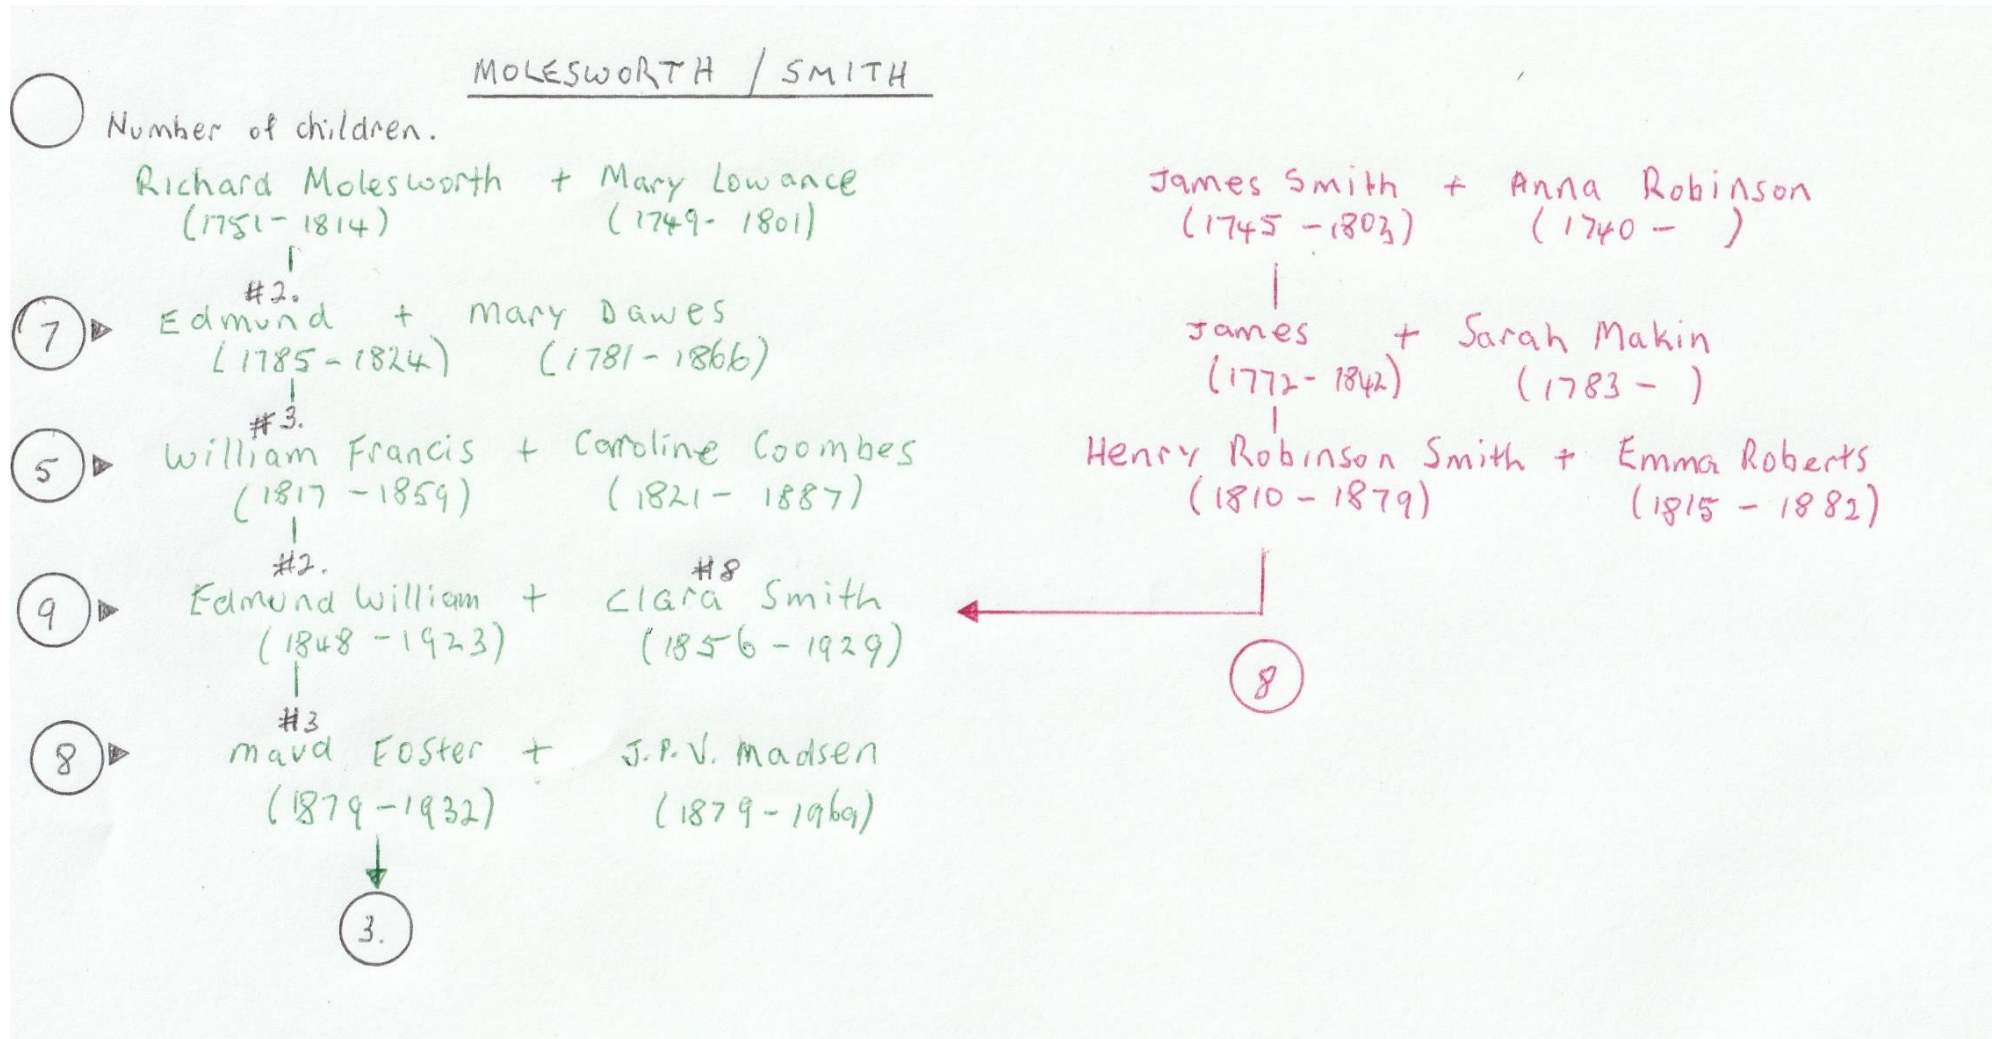 MOLESWORTH / SMITH
Number of children.
Richard Molesworth + Mary Lowance
(1751-1814) (1749-1801)
#2.
7 Edmund + Mary Dawes
(1785-1824) (1781-1866)
#3.
5 William Francis + Caroline Coombes
(1817-1859) (1821-1887)
#2. #8
9 Edmund William + Clara Smith
(1848-1923) (1856-1929)
#3
8 Maud Foster + J.P.V. Madsen
(1879-1932) (1879-1969)
3.
James Smith + Anna Robinson
(1745-1803) (1740- )
James + Sarah Makin
(1772-1842) (1783- )
Henry Robinson Smith + Emma Roberts
(1810-1879) (1815-1882)
8